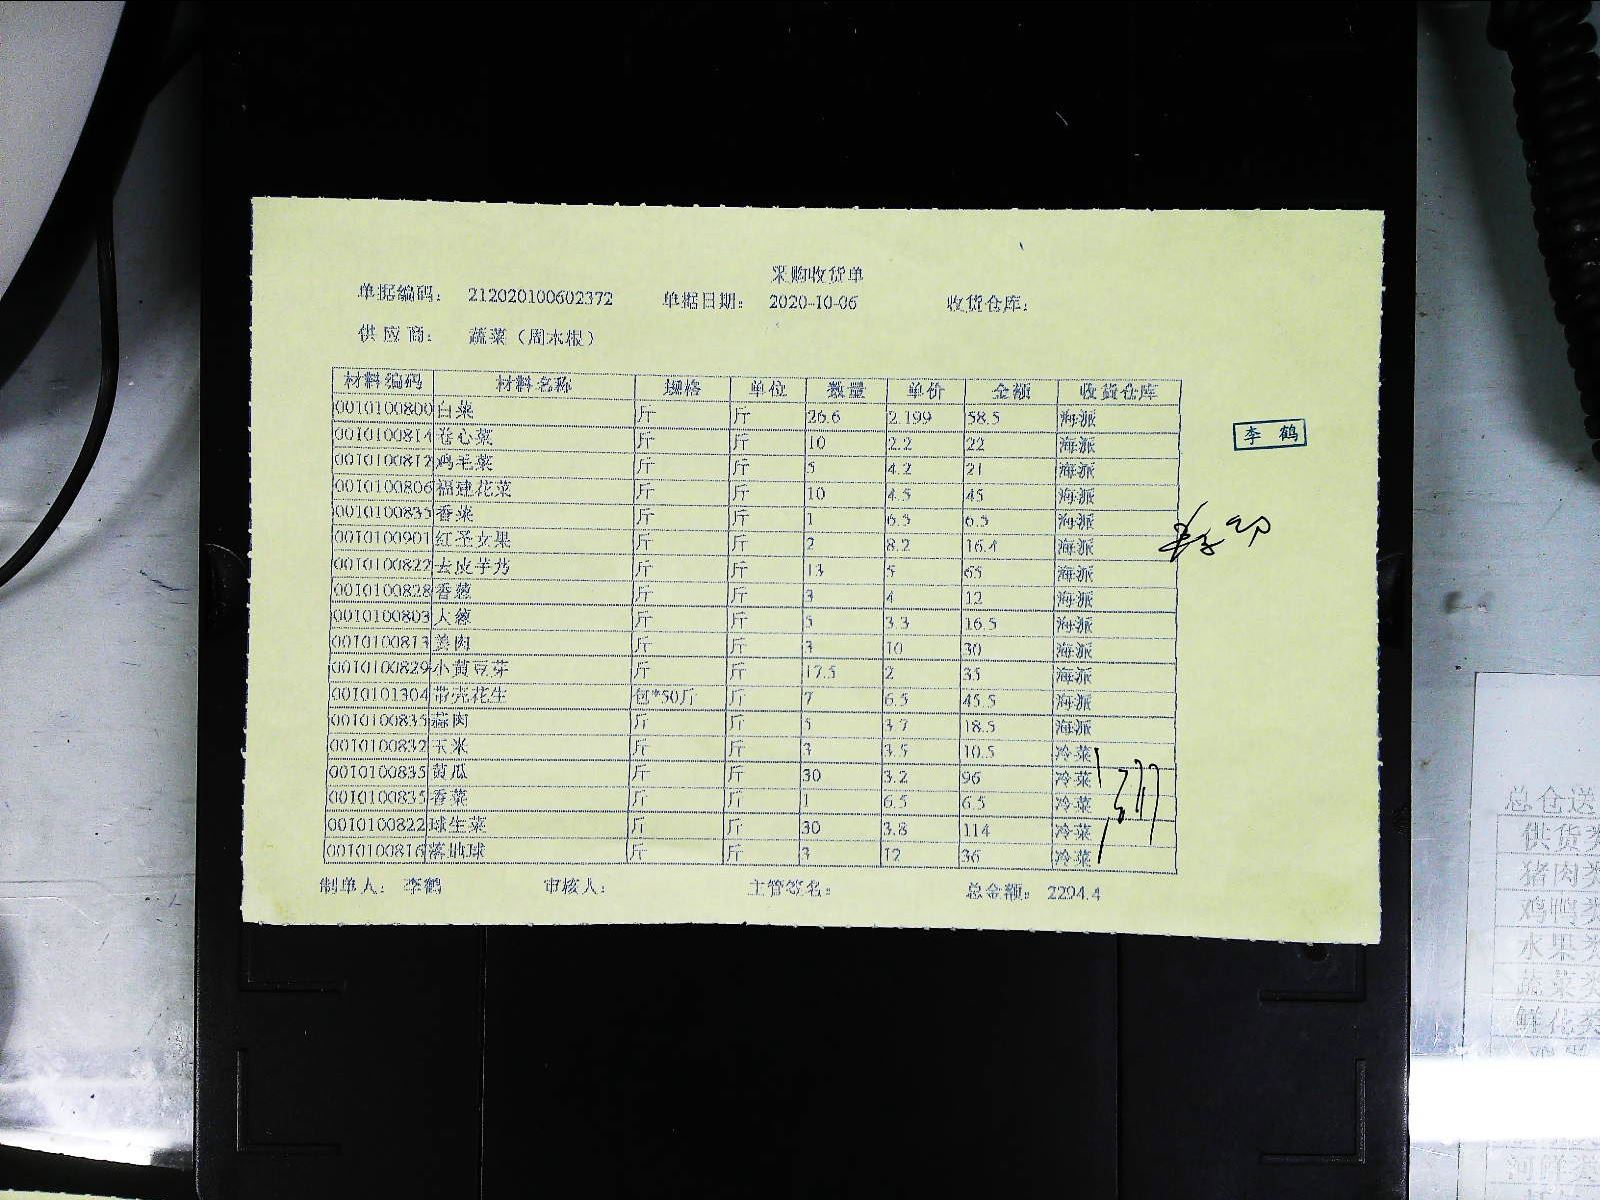 采购收货单
单据编码: 212020100602372 单据日期: 2020-10-06 收货仓库:
供应商: 蔬菜（周木根）
材料编码 材料名称 规格 单位 数量 单价 金额 收货仓库
0010100800 白菜 斤 斤 26.6 2.199 58.5 海派
0010100814 卷心菜 斤 斤 10 2.2 22 海派
0010100812 鸡毛菜 斤 斤 5 4.2 21 海派
0010100806 福建花菜 斤 斤 10 4.5 45 海派
0010100835 香菜 斤 斤 1 6.5 6.5 海派
0010100901 红圣女果 斤 斤 2 8.2 16.4 海派
0010100822 去皮芋艿 斤 斤 13 5 65 海派
0010100828 香葱 斤 斤 3 4 12 海派
0010100803 大葱 斤 斤 5 3.3 16.5 海派
0010100813 姜肉 斤 斤 3 10 30 海派
0010100829 小黄豆芽 斤 斤 17.5 2 35 海派
0010101304 带壳花生 包*50斤 斤 7 6.5 45.5 海派
0010100835 蒜肉 斤 斤 5 3.7 18.5 海派
0010100832 玉米 斤 斤 3 3.5 10.5 冷菜
0010100835 黄瓜 斤 斤 30 3.2 96 冷菜
0010100835 香菜 斤 斤 1 6.5 6.5 冷菜
0010100822 球生菜 斤 斤 30 3.8 114 冷菜
0010100816 落地球 斤 斤 3 12 36 冷菜
制单人: 李鹤 审核人: 主管签名: 总金额: 2294.4
李鹤
总仓送
供货类
猪肉类
鸡鸭类
水果类
蔬菜类
鲜花类
河鲜类